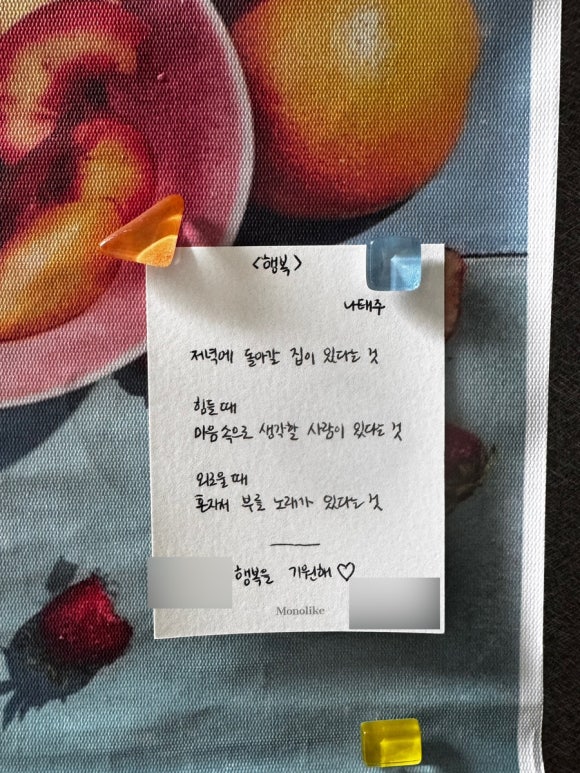 <행복>
나태주
저녁에 돌아갈 집이 있다는 것
힘들 때
마음속으로 생각할 사람이 있다는 것
외로울 때
혼자서 부를 노래가 있다는 것
행복을 기원해♡
Monolike